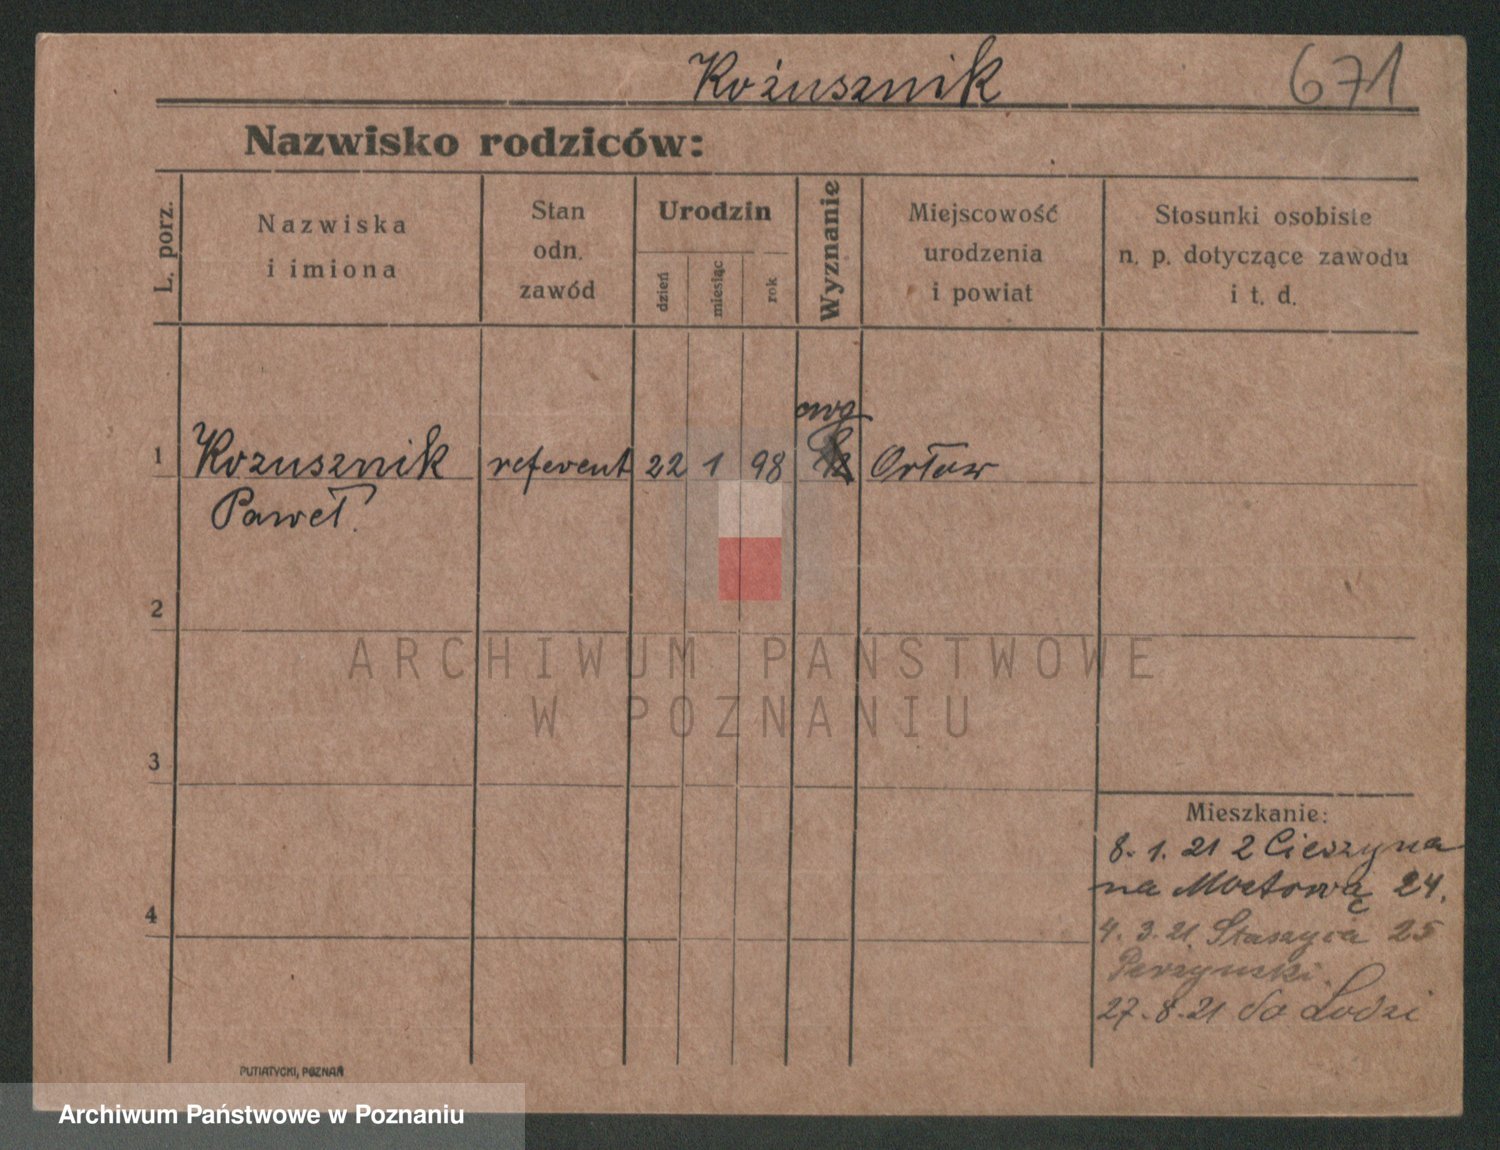 Kożusznik 671
Nazwisko rodziców:
L. porz.
Nazwiska
i imiona
Stan
odn.
zawód
Urodzin
dzień
miesiąc
rok
Wyznanie
Miejscowość
urodzenia
i powiat
Stosunki osobiste
n. p. dotyczące zawodu
i t. d.
ewg
1 Kozusznik referent 22 1 98 Orłow
Paweł.
2
3
4
Mieszkanie:
8. 1. 21 z Cieszyna
na Mostową 24.
4. 3. 21. Staszyca 25
Perzynski.
27. 8. 21 do Łodzi
PUTIATYCKI, POZNAŃ
ARCHIWUM PAŃSTWOWE
W POZNANIU
Archiwum Państwowe w Poznaniu